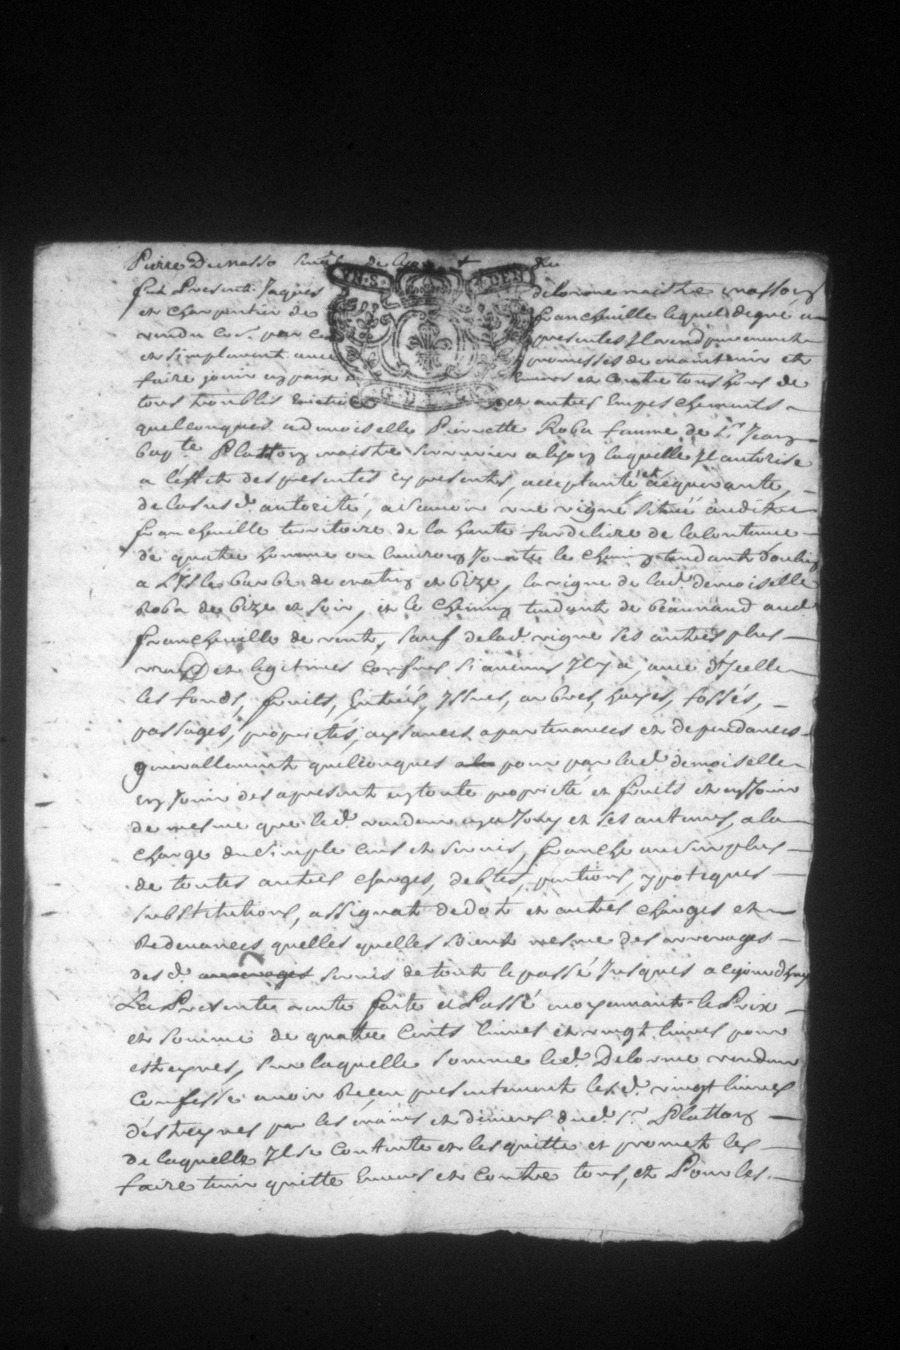 Pierre Dumasso
VN·S· DEN
fut Present Jaques delorme maistre masson
et charpentier de francheville lequel de gré a
vendu et par ces presentes Il vend purement
et simplement avec promesses de maintenir et
faire jouir en paix envers et contre tous hors de
tous troubles evictions et autres empeschements
quelconques a demoiselle Pierrette Roba femme de Sr Jean
bapte Plattoz maistre serrurier a lyon laquelle Il autorise
a l'effet des presentes cy presente, acceptante et acquerante,
de lasusd. autorité, a scavoir une vigne située audit
francheville territoire de la haute fardeliere de la contenue
de quatre hommes ou environ Joignant le chemin tendant d'oulin
a L'Isle barbe de matin et bize, la vigne de lad. demoiselle
Roba de bize et soir, et le chemin tendant de beaunand aud
francheville de vent, sauf delad. vigne ses autres plus
vrais et legitimes confins si aucuns Il y a, avec d'Icelle
les fonds, fruits, Entrées, Issues, arbres, hayes, fossés,
passages, proprietés, aysances apartenances et dependances
generallement quelconques pour par lad. demoiselle
en Jouir des apresent en toute proprieté et fruits et en Jouir
de mesme que led. vendeur en a Jouy et ses auteurs, a la
charge du simple cens et servis, franche au surplus
de toutes autres charges, debtes, pentions, ypoteques
substitutions, assignat de dot et autres charges et
Redevances quelles quelles soient mesme des arrerages
desd. arrerages servis de tout le passé Jusques a cejourdhuy
La Presente vente faite et Passé moyennant le Prix
et somme de quatre cents livres et vingt livres pour
estreynes, sur laquelle somme led. Delorme vendeur
confesse avoir Receu presentement lesd. vingt livres
d'estreynes par les mains et deniers dud. sr Plattoz
de laquelle Il se contente et les quitte et promet les
faire tenir quitte envers et contre tous, et Pour les